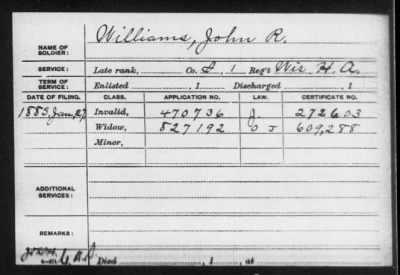 NAME OF SOLDIER: Williams, John R.
SERVICE: Late rank, Co. L, 1 Reg't Wis H. A.
TERM OF SERVICE: Enlisted , 1 Discharged , 1
DATE OF FILING. CLASS. APPLICATION NO. LAW. CERTIFICATE NO.
1883, Jan, 27 Invalid, 470736 J. 272603
Widow, 827192 O J 609,288
Minor,
ADDITIONAL SERVICES:
REMARKS:
Died , 1 , at